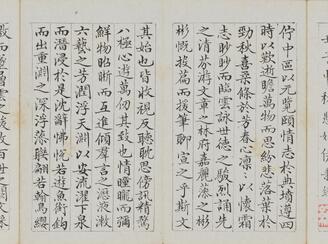 佇中區以玄覽頤情志於典墳遵四
時以歎逝瞻萬物而思紛悲落葉於
勁秋喜柔條於芳春凜以懷霜
志眇眇而臨雲詠世德之駿烈誦先
之清芬游文章之林府嘉麗藻之彬
彬慨投篇而援筆聊宣之乎斯文
其始也皆收視反聽耽思傍訊精騖
八極心遊萬仞其致也情曈曨而彌
鮮物昭晣而互進傾群言之瀝液漱
六藝之芳潤浮天淵以安流濯下泉
而潛浸於是沈辭怫悅若遊魚銜鉤
而出重淵之深浮藻聯翩若翰鳥纓
繳而墜曾雲之峻收百世之闕文採